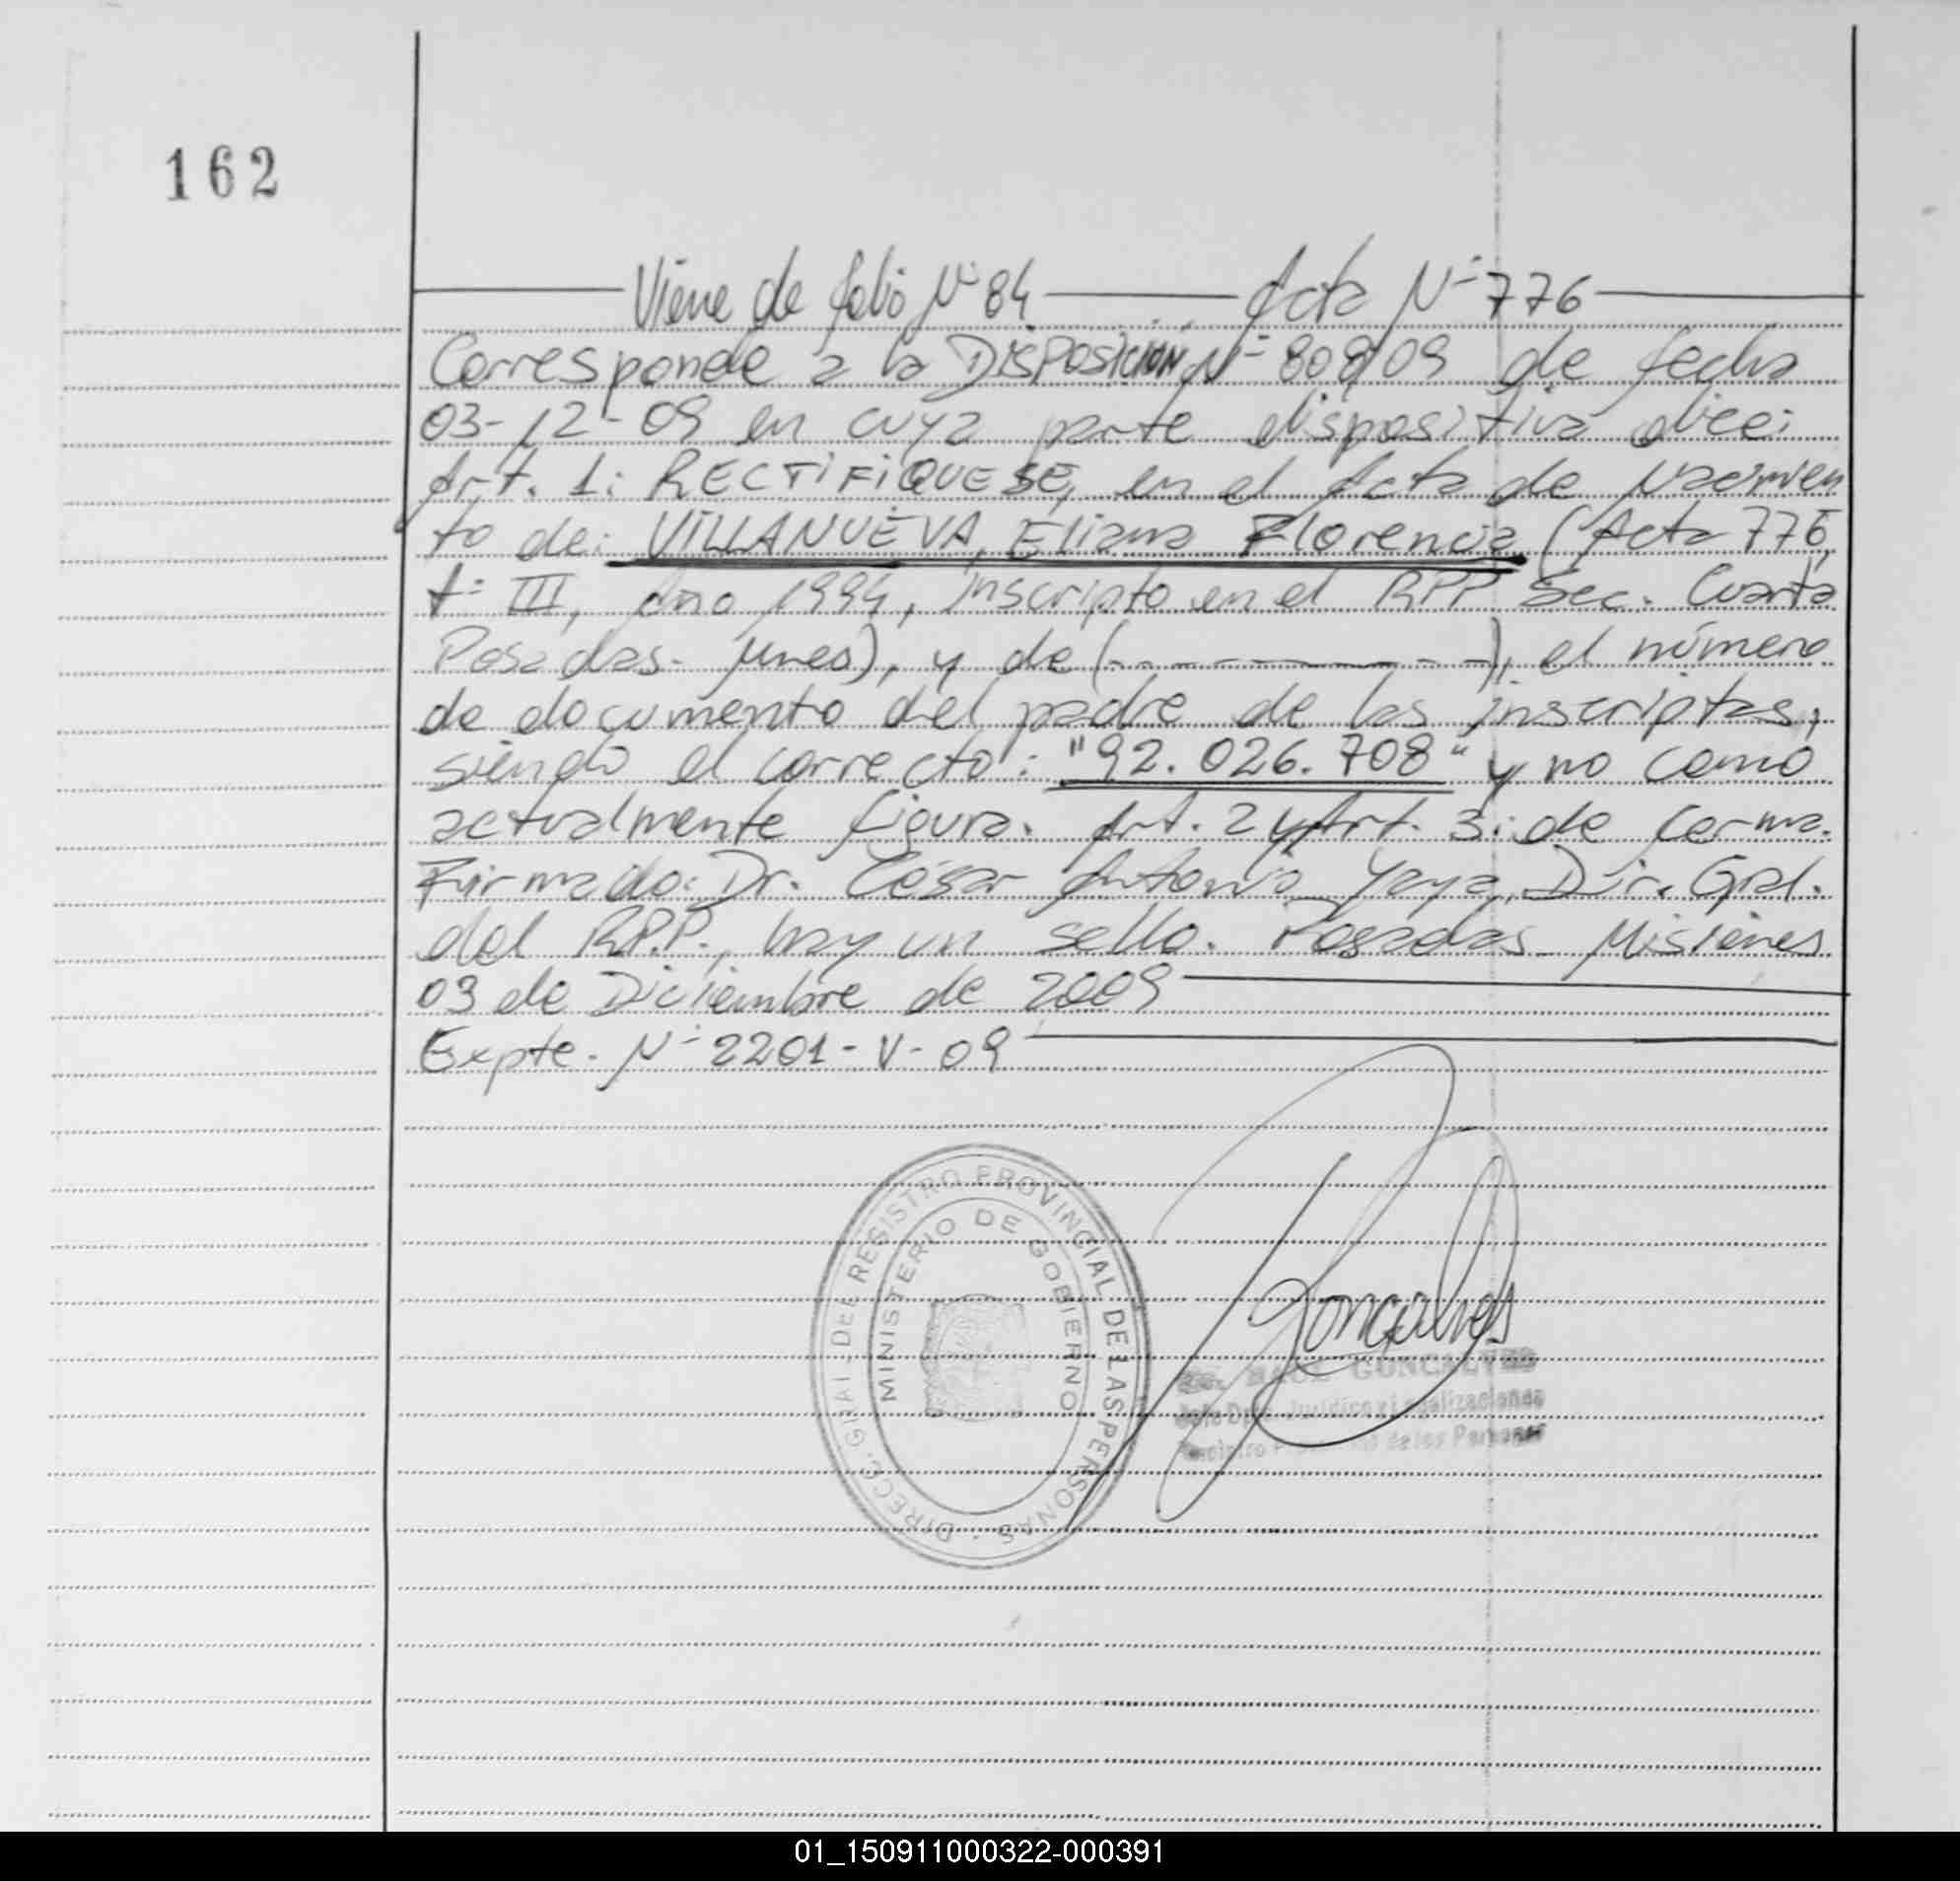 162
Viene de folio N° 84 Acta N° 776
Corresponde a la DISPOSICIÓN N° 808/09 de fecha
03-12-09 en cuya parte dispositiva dice:
Art. 1: RECTIFIQUESE, en el Acta de Nacimien
to de: VILLANUEVA, Eliana Florencia (Acta 776,
t° III, Año 1994, inscripto en el RPP Sec. Cuarta
Posadas- Mnes), y de (- - - - - - -), el número
de documento del padre de las inscriptas,
siendo el correcto: "92.026.708" y no como
actualmente figura. Art. 2 y Art. 3: de forma.
Firmado: Dr. César Antonio Yaya, Dir. Gral.
del R.P.P., hay un sello. Posadas Misiones
03 de Diciembre de 2009
Expte. N° 2201-V-09
DIRECC. GRAL. DEL REGISTRO PROVINCIAL DE LAS PERSONAS
MINISTERIO DE GOBIERNO
Gonçalves
RAUL GONCALVES
Jefe Dpto. Jurídico y Legalizaciones
Registro Provincial de las Personas
01_150911000322-000391